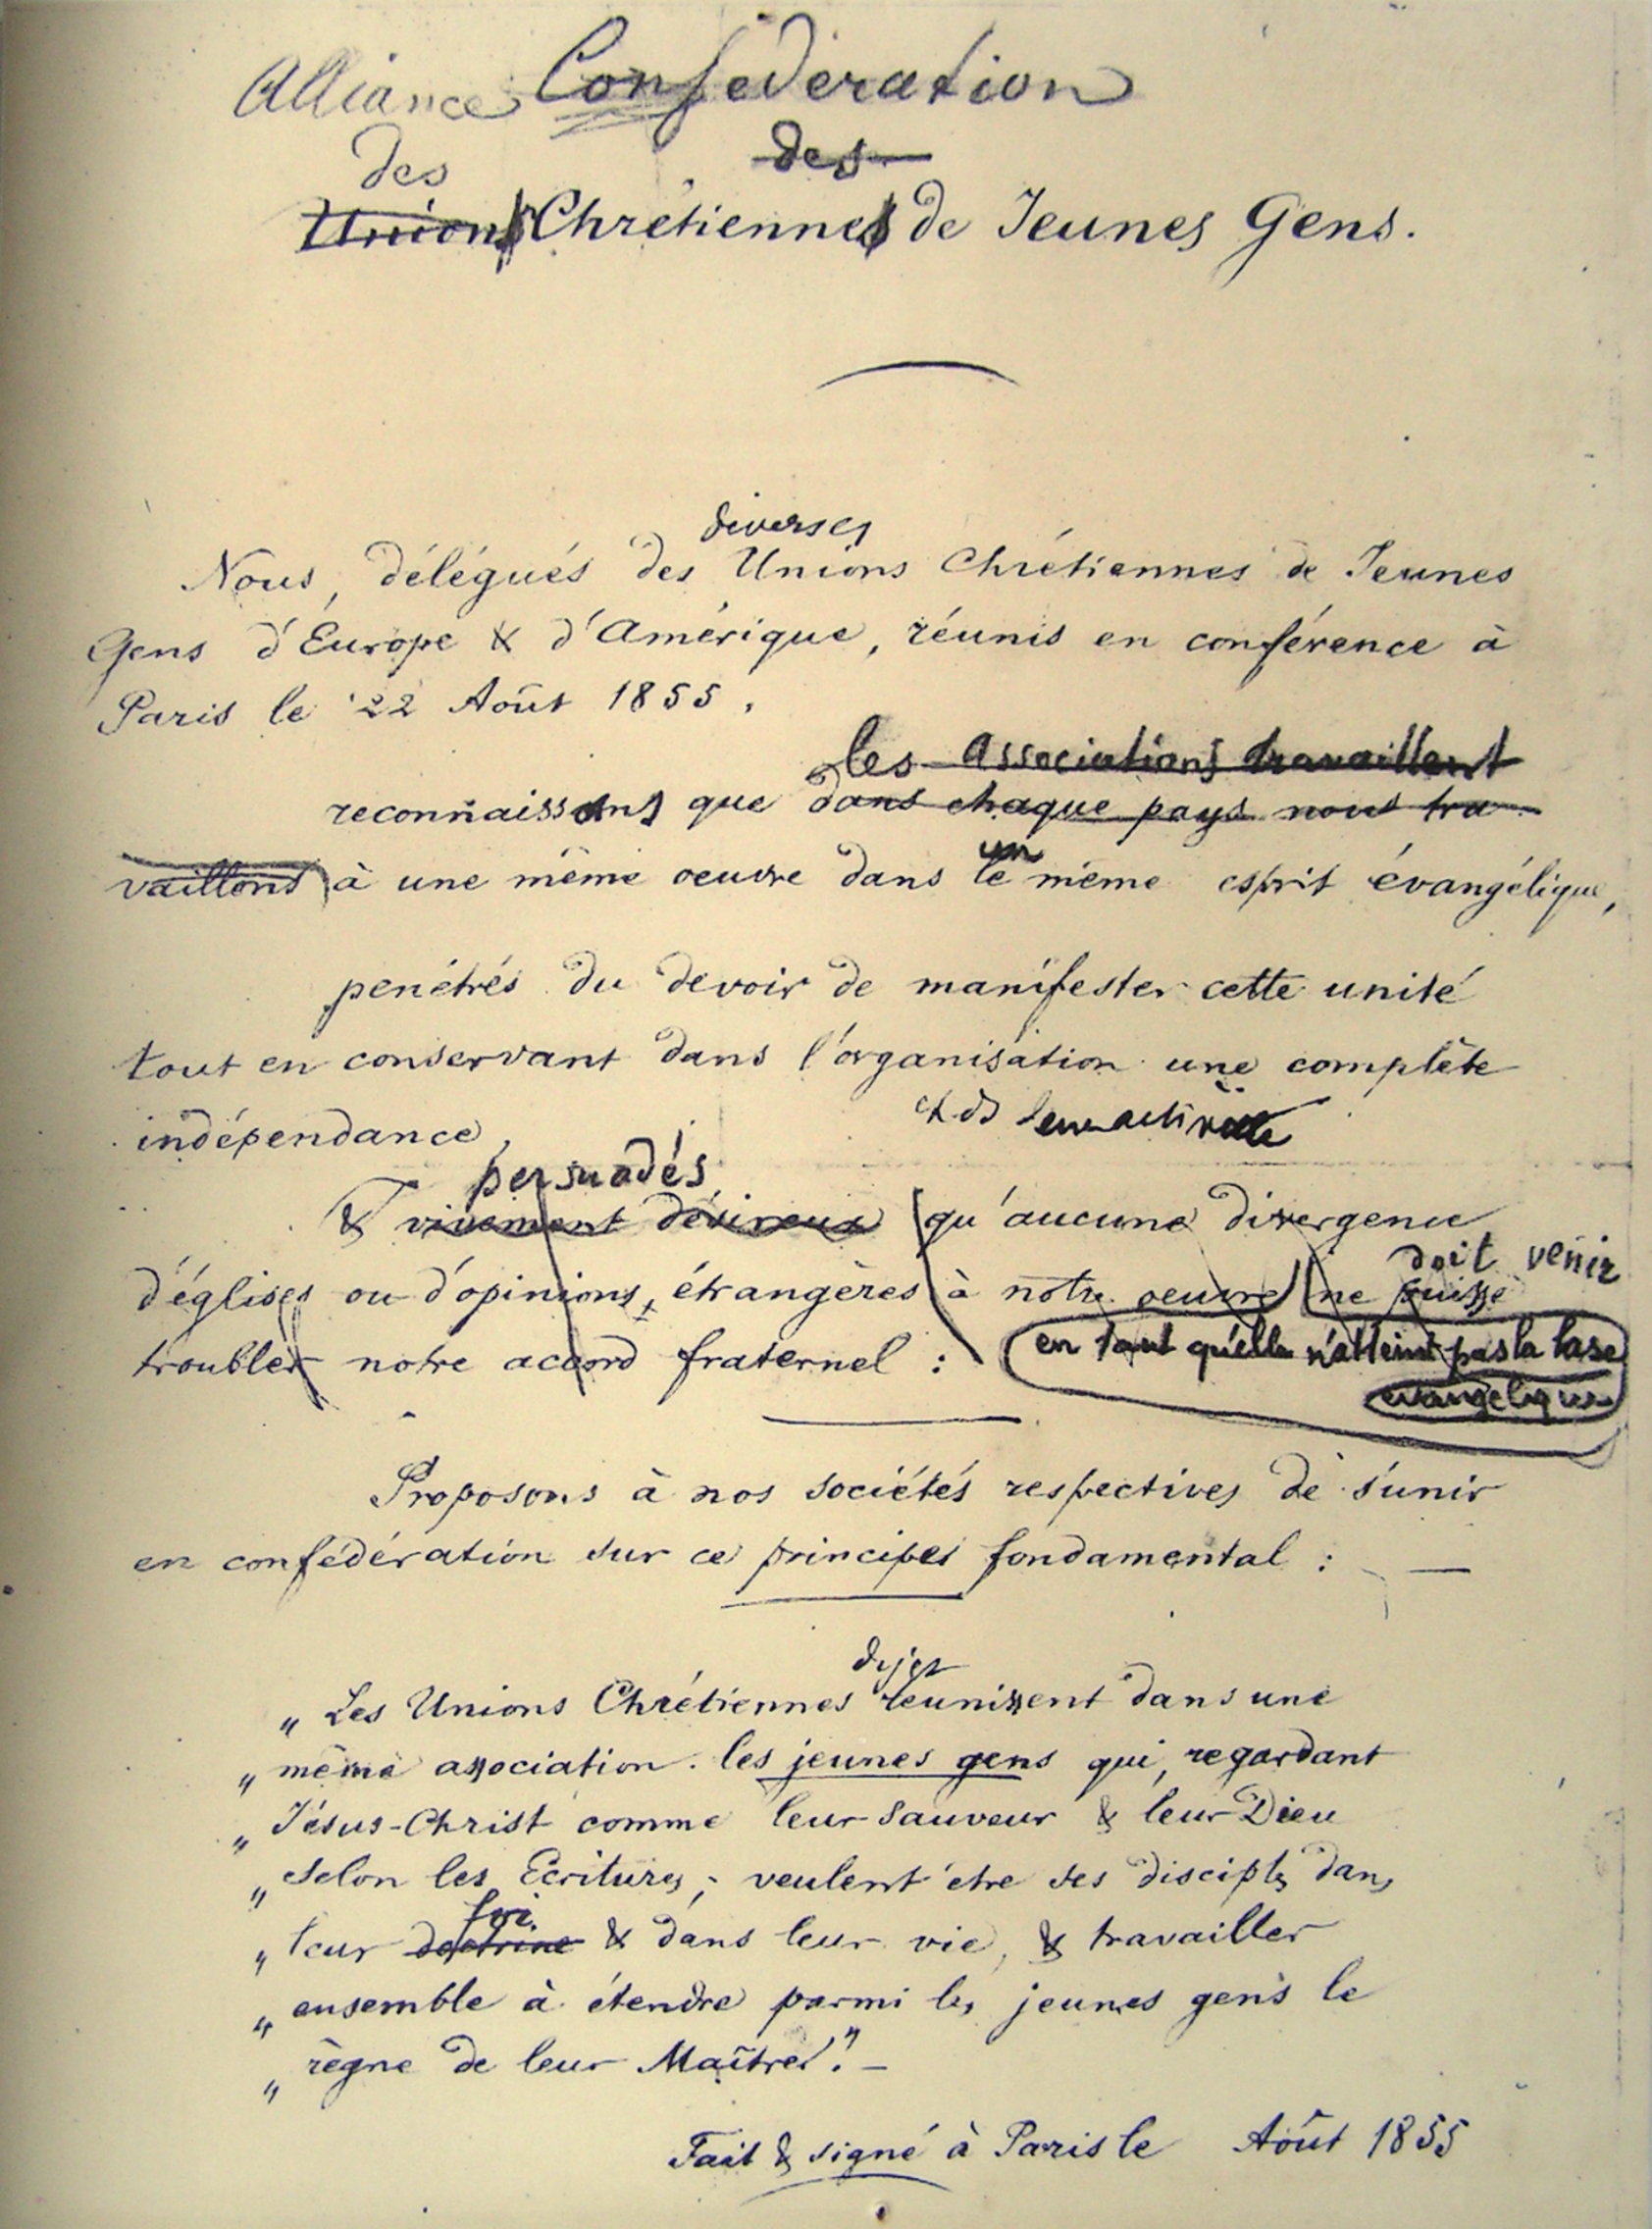 Alliance Confédération
des des
Unions Chrétiennes de Jeunes Gens.
diverses
Nous, délégués des Unions Chrétiennes de Jeunes
Gens d'Europe & d'Amérique, réunis en conférence à
Paris le 22 Août 1855,
les Associations travaillent
reconnaissons que dans chaque pays nous tra-
un
vaillons à une même oeuvre dans le même esprit évangélique,
penétrés du devoir de manifester cette unité
tout en conservant dans l'organisation une complète
indépendance,
persuadés
& vivement désireux qu'aucune divergence
doit venir
d'églises ou d'opinions, étrangères à notre oeuvre ne puisse
troubler notre accord fraternel : en tant qu'elle n'atteint pas la base
evangelique
Proposons à nos sociétés respectives de s'unir
en confédération sur ce principe fondamental : —
„ Les Unions Chrétiennes réunissent dans une
„ même association les jeunes gens qui, regardant
„ Jésus-Christ comme leur Sauveur & leur Dieu
„ selon les Ecritures, veulent être ses disciples dans
foi
„ leur doctrine & dans leur vie, & travailler
„ ensemble à étendre parmi les jeunes gens le
„ règne de leur Maître." –
Fait & signé à Paris le Août 1855